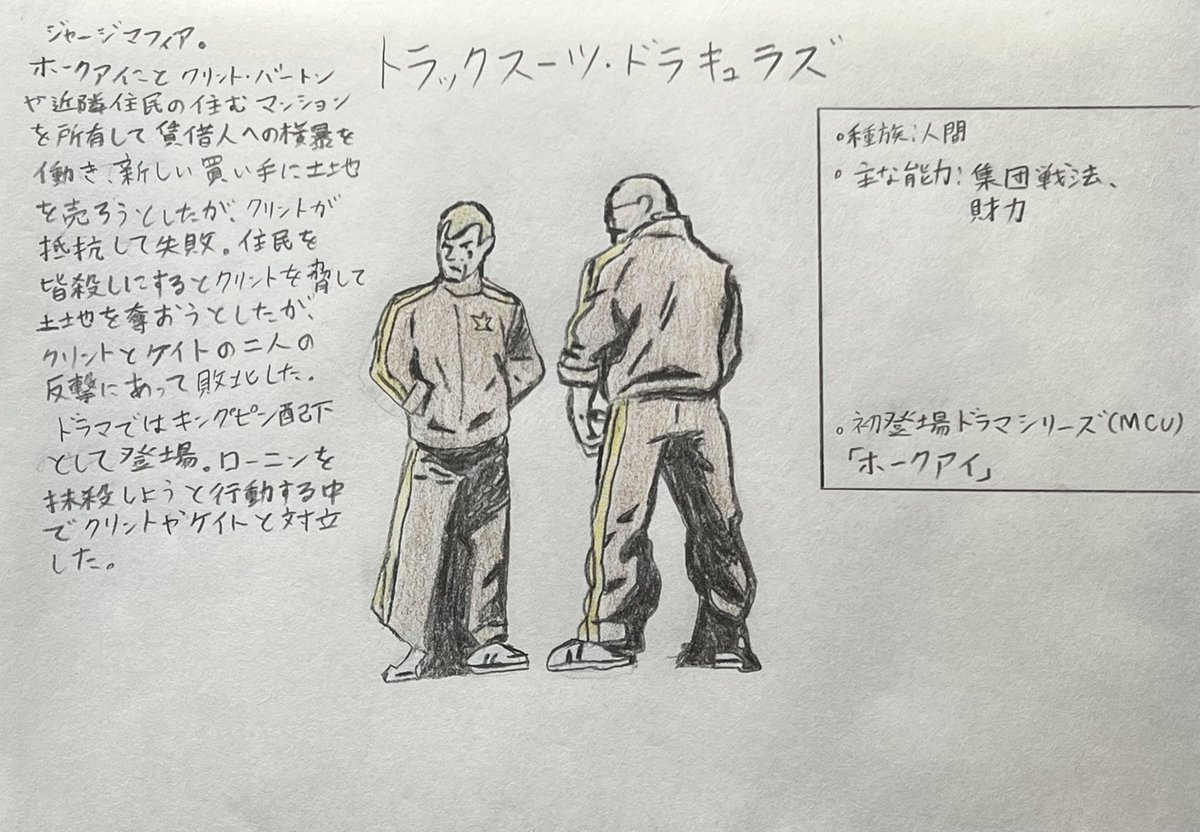 トラックスーツ・ドラキュラズ
ジャージマフィア。
ホークアイこと クリント・バートン
や近隣住民の住むマンション
を所有して賃借人への横暴を
働き、新しい買い手に土地
を売ろうとしたが、クリントが
抵抗して失敗。住民を
皆殺しにするとクリントを脅して
土地を奪おうとしたが、
クリントとケイトの二人の
反撃にあって敗北した。
ドラマではキングピン配下
として登場。ローニンを
抹殺しようと行動する中
でクリントやケイトと対立
した。
○種族:人間
○主な能力:集団戦法、
財力
○初登場ドラマシリーズ(MCU)
「ホークアイ」